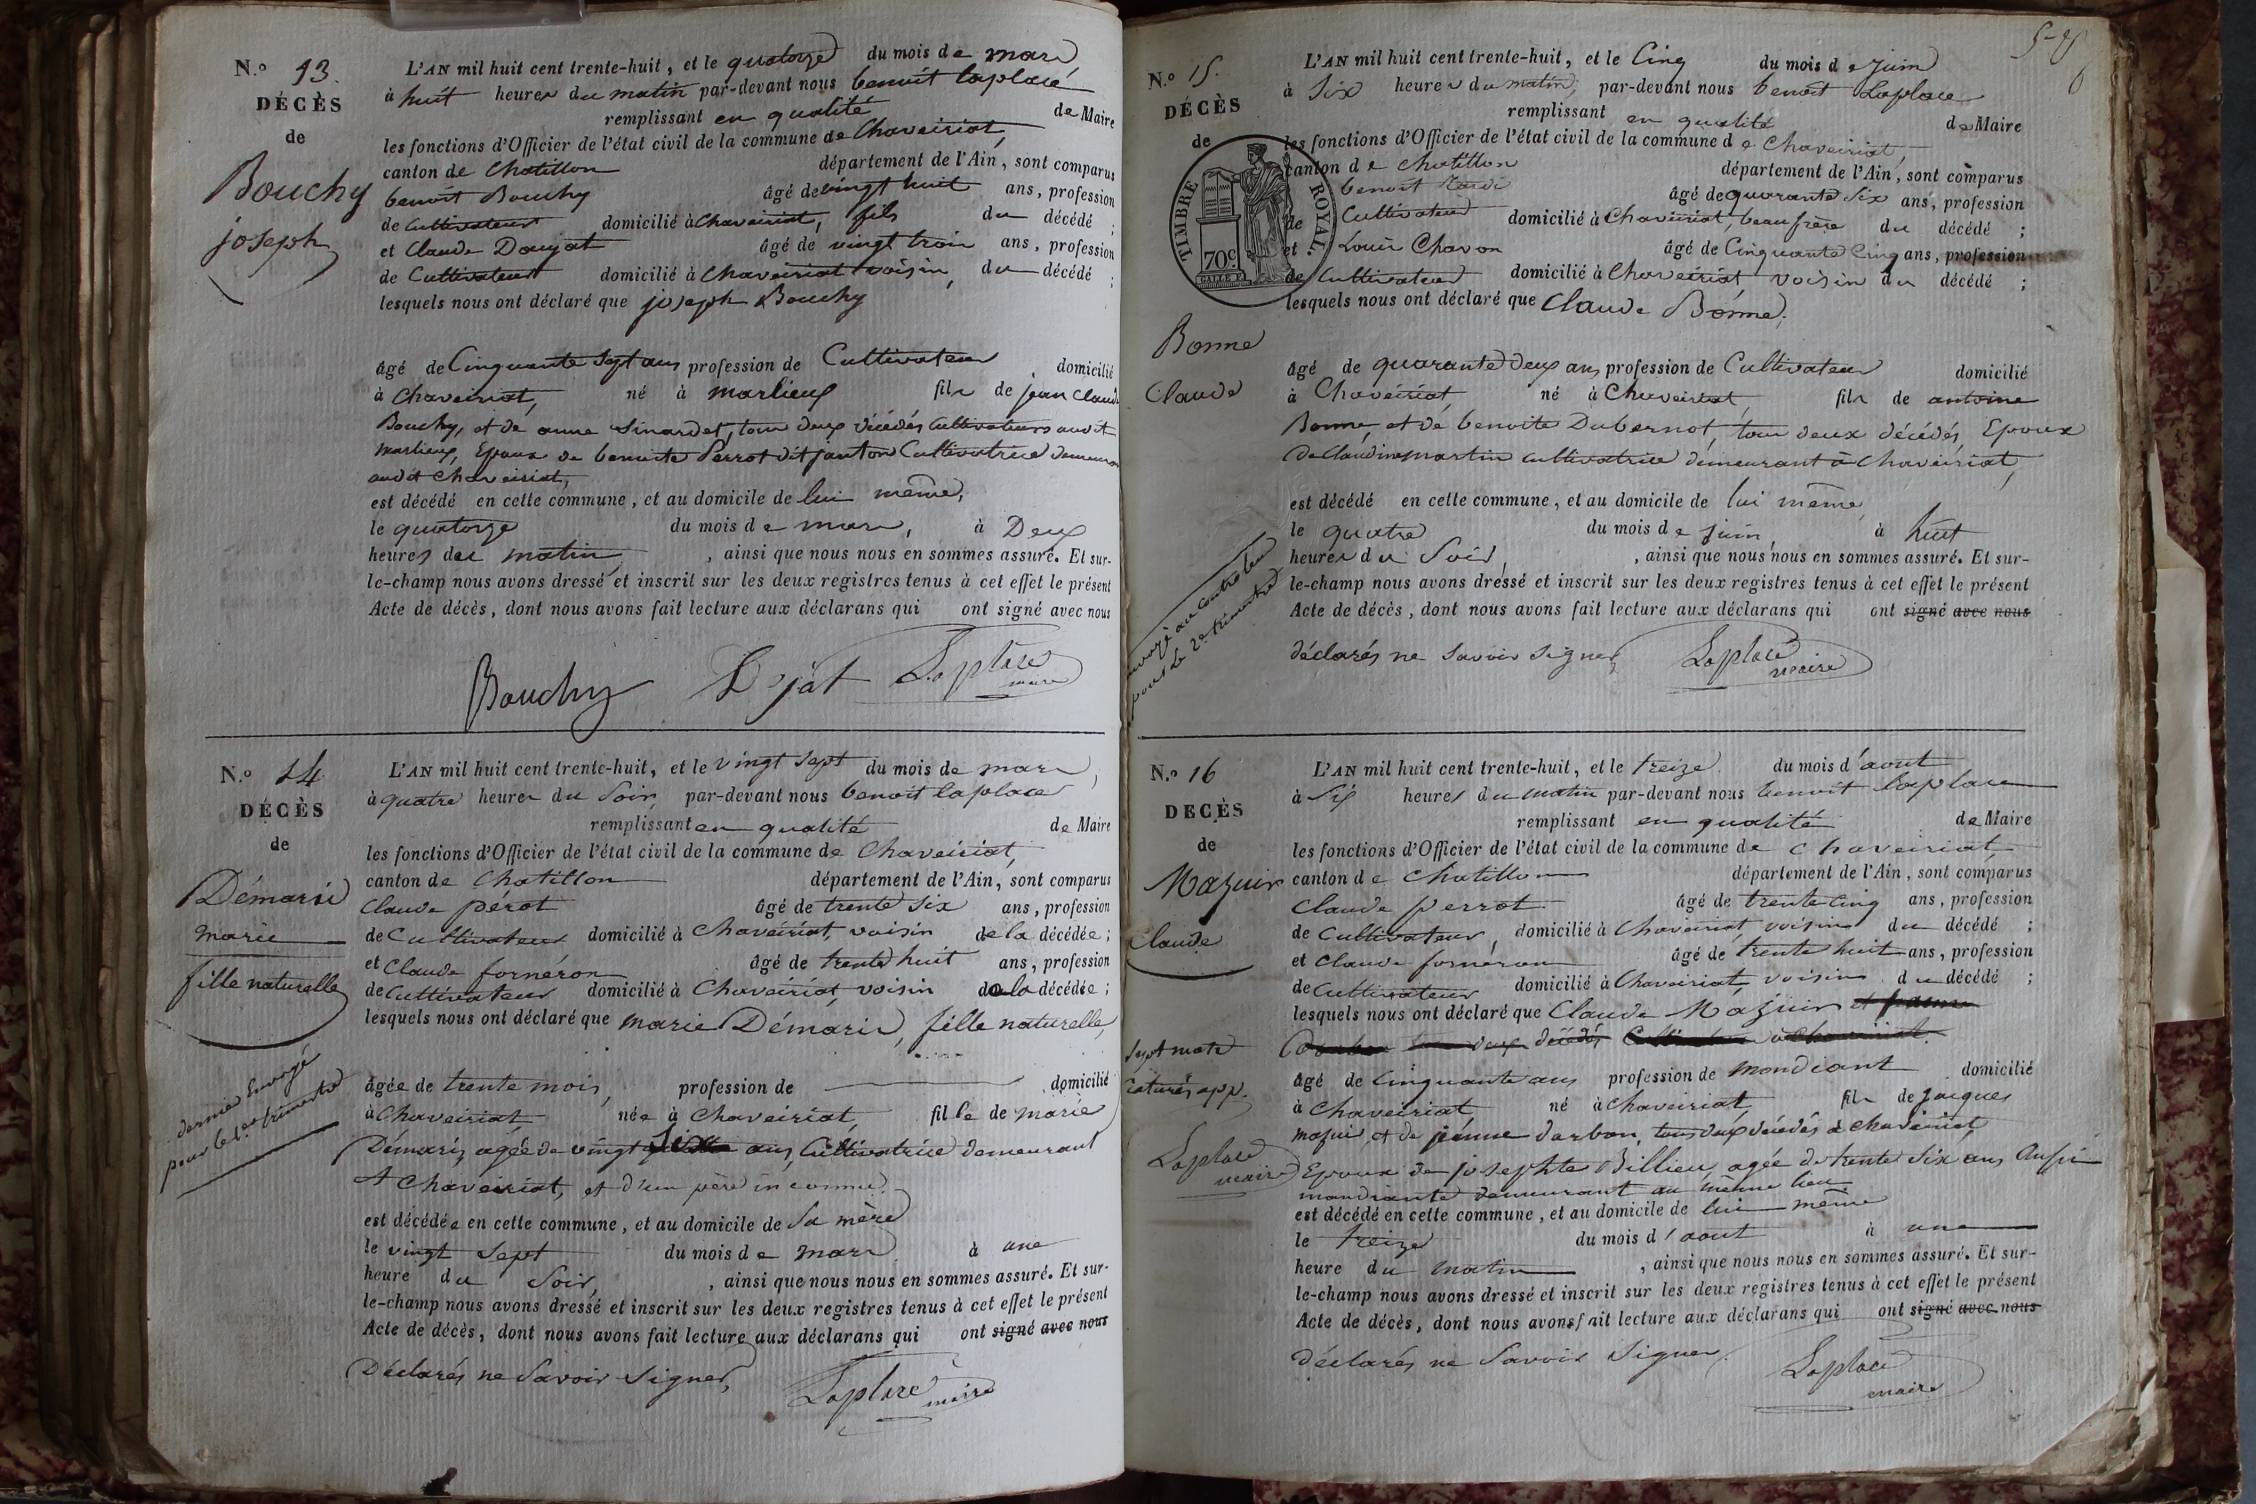 N.º 13.
DÉCÈS
de
Bouchy
joseph
L'AN mil huit cent trente-huit, et le quatorze du mois de mars
à huit heures du matin par-devant nous benoit laplace
remplissant en qualité de Maire
les fonctions d'Officier de l'état civil de la commune de Chaveiriat,
canton de Chatillon département de l'Ain, sont comparus
benoit Bouchy âgé de vingt huit ans, profession
de Cultivateur domicilié à Chaveiriat, fils du décédé ;
et Claude Doujat âgé de vingt trois ans, profession
de Cultivateur domicilié à Chaveiriat voisin du décédé ;
lesquels nous ont déclaré que joseph Bouchy
âgé de Cinquante sept ans profession de Cultivateur domicilié
à Chaveiriat, né à marlieux fils de jean Claude
Bouchy, et de anne Sinardet, tous deux décédés Cultivateurs audit
marlieux, Epoux de benoite Perrot dit janton Cultivatrice
audit Chaveiriat,
est décédé en cette commune, et au domicile de lui même,
le quatorze du mois de mars, à Deux
heures du matin, ainsi que nous nous en sommes assuré. Et sur-
le-champ nous avons dressé et inscrit sur les deux registres tenus à cet effet le présent
Acte de décès, dont nous avons fait lecture aux déclarans qui ont signé avec nous
Bouchy Dejat Laplace
maire
N.º 14
DÉCÈS
de
Démaris
marie
fille naturelle
dernié Envoyé
pour le 1er trimestre
L'AN mil huit cent trente-huit, et le vingt sept du mois de mars,
à quatre heures du Soir, par-devant nous benoit laplace
remplissant en qualité de Maire
les fonctions d'Officier de l'état civil de la commune de Chaveiriat,
canton de Chatillon département de l'Ain, sont comparus
Claude perot âgé de trente six ans, profession
de Cultivateur domicilié à Chaveiriat, voisin de la décédée ;
et Claude fornéron âgé de trente huit ans, profession
de Cultivateur domicilié à Chaveiriat, voisin de la décédée ;
lesquels nous ont déclaré que marie Démaris, fille naturelle,
âgée de trente mois, profession de domicilié
à Chaveiriat née à Chaveiriat, fille de marie
Démaris, agée de vingt ans, Cultivatrice demeurant
A Chaveiriat, et d'un père inconnu.
est décédée en cette commune, et au domicile de Sa mère
le vingt sept du mois de mars à une
heure du Soir, ainsi que nous nous en sommes assuré. Et sur-
le-champ nous avons dressé et inscrit sur les deux registres tenus à cet effet le présent
Acte de décès, dont nous avons fait lecture aux déclarans qui ont signé avec nous
Déclarés ne Savoir Signer,
Laplace maire
N.º 15.
DÉCÈS
de
TIMBRE ROYAL.
70c
Bonne
Claude
envoyé au contrôleur
pour le 2e trimestre
L'AN mil huit cent trente-huit, et le Cinq du mois de juin
à Six heures du matin, par-devant nous benoit Laplace
remplissant en qualité de Maire
les fonctions d'Officier de l'état civil de la commune de Chaveiriat,
canton de chatillon département de l'Ain, sont comparus
benoit âgé de quarante six ans, profession
de Cultivateur domicilié à Chaveiriat, beaufrère du décédé ;
et Louis Chavon âgé de Cinquante Cinq ans, profession
de Cultivateur domicilié à Chaveiriat voisin du décédé ;
lesquels nous ont déclaré que Claude Bonne,
âgé de quarante deux ans profession de Cultivateur domicilié
à Chaveiriat, né à Chaveiriat, fils de antoine
Bonne, et de benoite Dubernot, tous deux décédés, Epoux
de Claudine martin cultivatrice demeurant à Chaveiriat,
est décédé en cette commune, et au domicile de lui même,
le quatre du mois de juin, à huit
heures du Soir, ainsi que nous nous en sommes assuré. Et sur-
le-champ nous avons dressé et inscrit sur les deux registres tenus à cet effet le présent
Acte de décès, dont nous avons fait lecture aux déclarans qui ont signé avec nous
déclarés ne Savoir Signer,
Laplace
maire
N.º 16
DECÈS
de
Mazuir
Claude
Sept mots
raturés app.
Laplace
maire
L'AN mil huit cent trente-huit, et le treize du mois d'aout
à Six heures du matin par-devant nous benoit laplace
remplissant en qualité de Maire
les fonctions d'Officier de l'état civil de la commune de chaveiriat,
canton de chatillon département de l'Ain, sont comparus
Claude perrot âgé de trente cinq ans, profession
de Cultivateur, domicilié à Chaveiriat, voisin du décédé ;
et Claude forneron âgé de trente huit ans, profession
de Cultivateur domicilié à Chaveiriat voisin du décédé ;
lesquels nous ont déclaré que Claude Mazuir
âgé de Cinquante ans profession de mondiant domicilié
à Chaveiriat, né à chaveiriat, fils de jacques
mazuir, et de jeanne darbon, tous deux décédés à chaveiriat,
Epoux de josephte Billieu, agée de trente six ans Aussi
mandiante demeurant au même lieu
est décédé en cette commune, et au domicile de lui même
le treize du mois d'aout à une
heure du matin, ainsi que nous nous en sommes assuré. Et sur-
le-champ nous avons dressé et inscrit sur les deux registres tenus à cet effet le présent
Acte de décès, dont nous avons fait lecture aux déclarans qui ont signé avec nous
déclarés ne Savoir Signer.
Laplace
maire